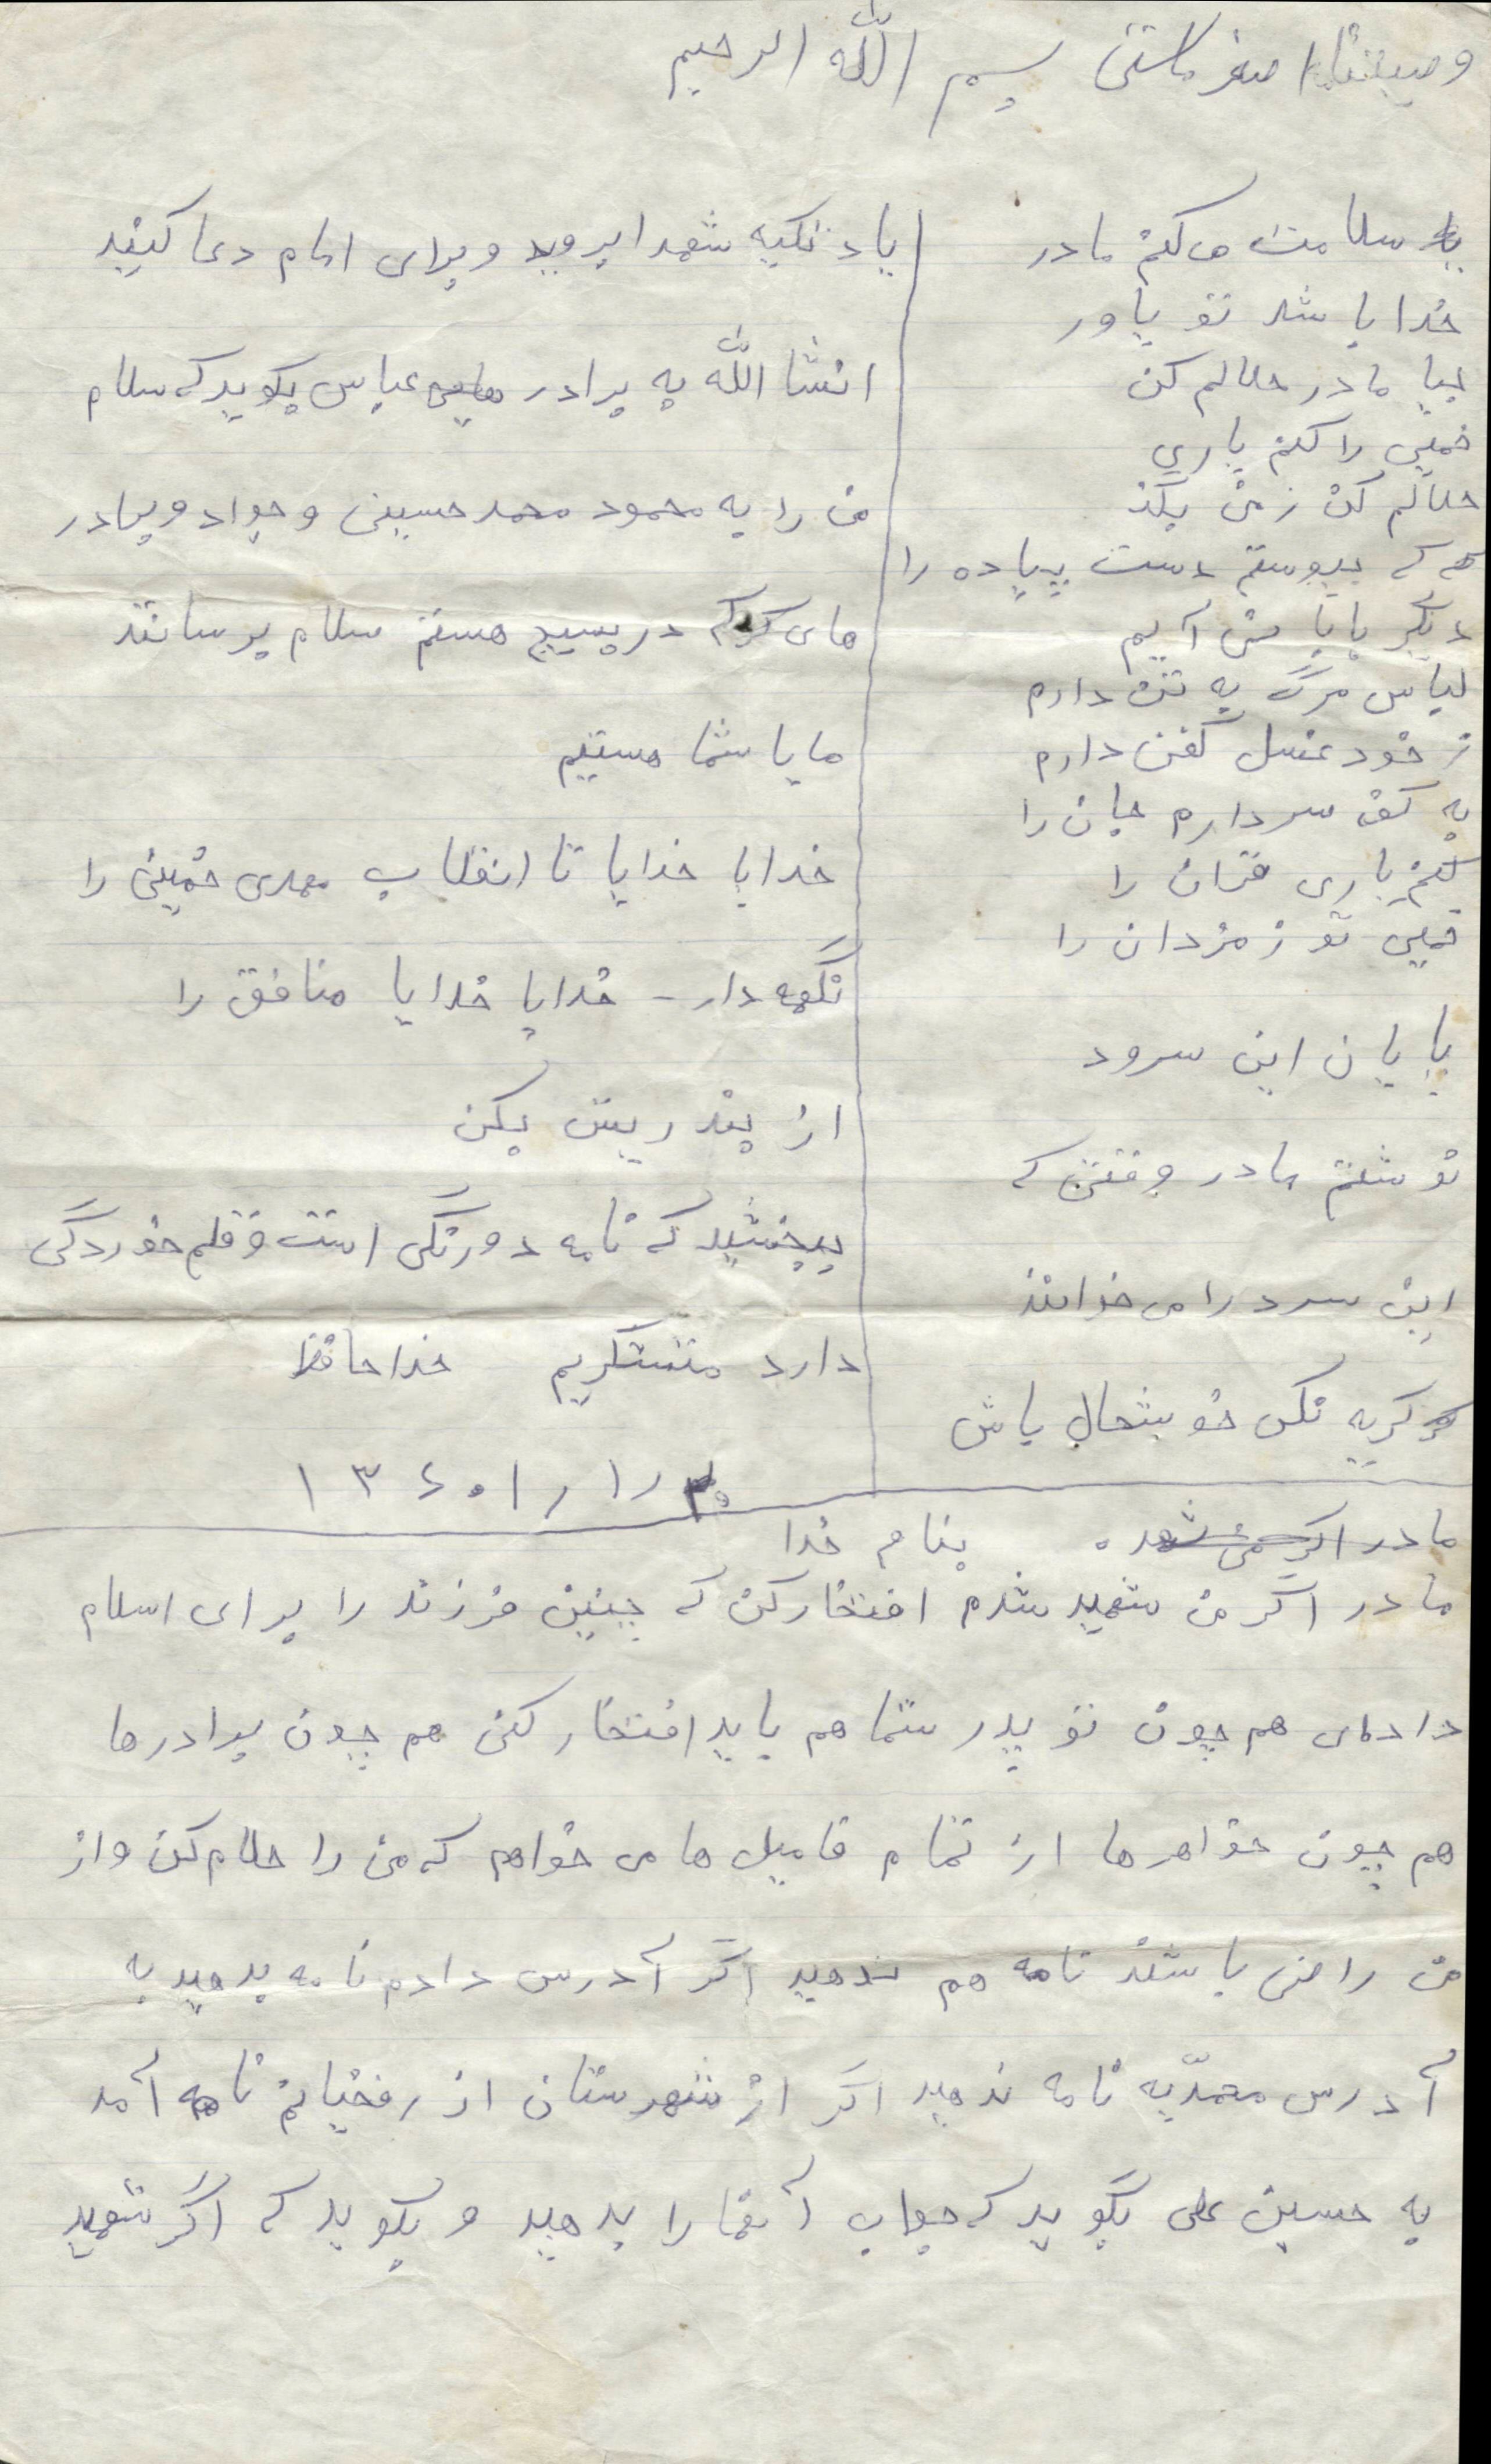 وصیتنا اصغر بسم الله الرحیم
سلامت می کنم مادر
خدا باشد تو یاور
بیا مادر حلالم کن
خمینی را کنم یاری
حلالم کن ز من بگذ
که ببوستم دست پیاده را
دیگر بابا من آیم
لباس مرگ به تن دارم
ز خود غسل کفن دارم
به کف سر دارم جان را
کنم یاری قران را
خمینی تو ز مردان را
پایان این سرود
نوشتم مادر وقتی که
این سرد را می خوانند
گریه نکن خوشحال باش
یاد تکیه شهدا بروید و برای امام دعا کنید
انشا الله به برادر هایی عباس بگوید که سلام
من را به محمود محمد حسینی و جواد و برادر
های که در بسیج هستم سلام برسانند
ما با شما هستیم
خدایا خدایا تا انقلاب مهدی خمینی را
نگهه دار - خدایا خدایا منافق را
از بند ریش بکن
ببخشید که نامه دو رنگی است و قلم خوردگی
دارد متشکریم خدا حافظ
۱۳۶۰/۱/۲۰
مادر اگر من شهد. بنام خدا
مادر اگر من شهید شدم افتخار کن که چنین فرزند را برای اسلام
داده‌ای هم چون تو پدر شما هم باید افتخار کنی هم چون برادرها
هم چون خواهرها از تمام فامیل ها می خواهم که من را حلام کن و از
من راضی باشند نامه هم ندهید اگر آدرس دادم نامه بدهید به
آدرس مهدّیه نامه ندهید اگر از شهرستان از رفقیانم نامه آمد
به حسین علی بگوید که جواب آنها را بدهید و بگوید که اگر شهید